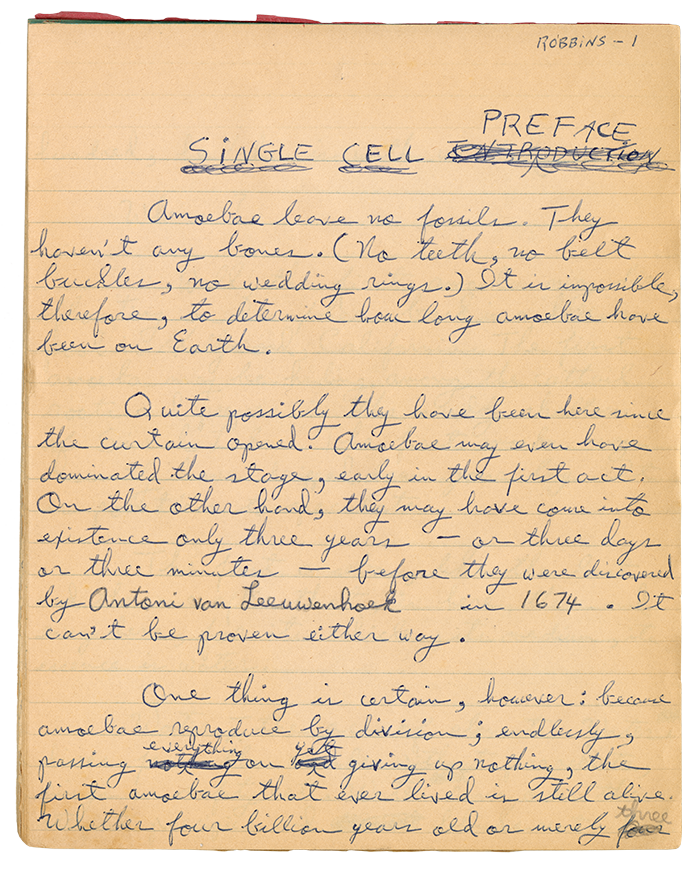 ROBBINS - 1
PREFACE
SINGLE CELL INTRODUCTION
Amoebae leave no fossils. They
haven't any bones. (No teeth, no belt
buckles, no wedding rings.) It is impossible,
therefore, to determine how long amoebae have
been on Earth.
Quite possibly they have been here since
the curtain opened. Amoebae may even have
dominated the stage, early in the first act.
On the other hand, they may have come into
existence only three years — or three days
or three minutes — before they were discovered
by Antoni van Leeuwenhoek in 1674. It
can't be proven either way.
One thing is certain, however: because
amoebae reproduce by division; endlessly,
everything yet
passing nothing on and giving up nothing, the
first amoebae that ever lived is still alive.
three
Whether four billion years old or merely four